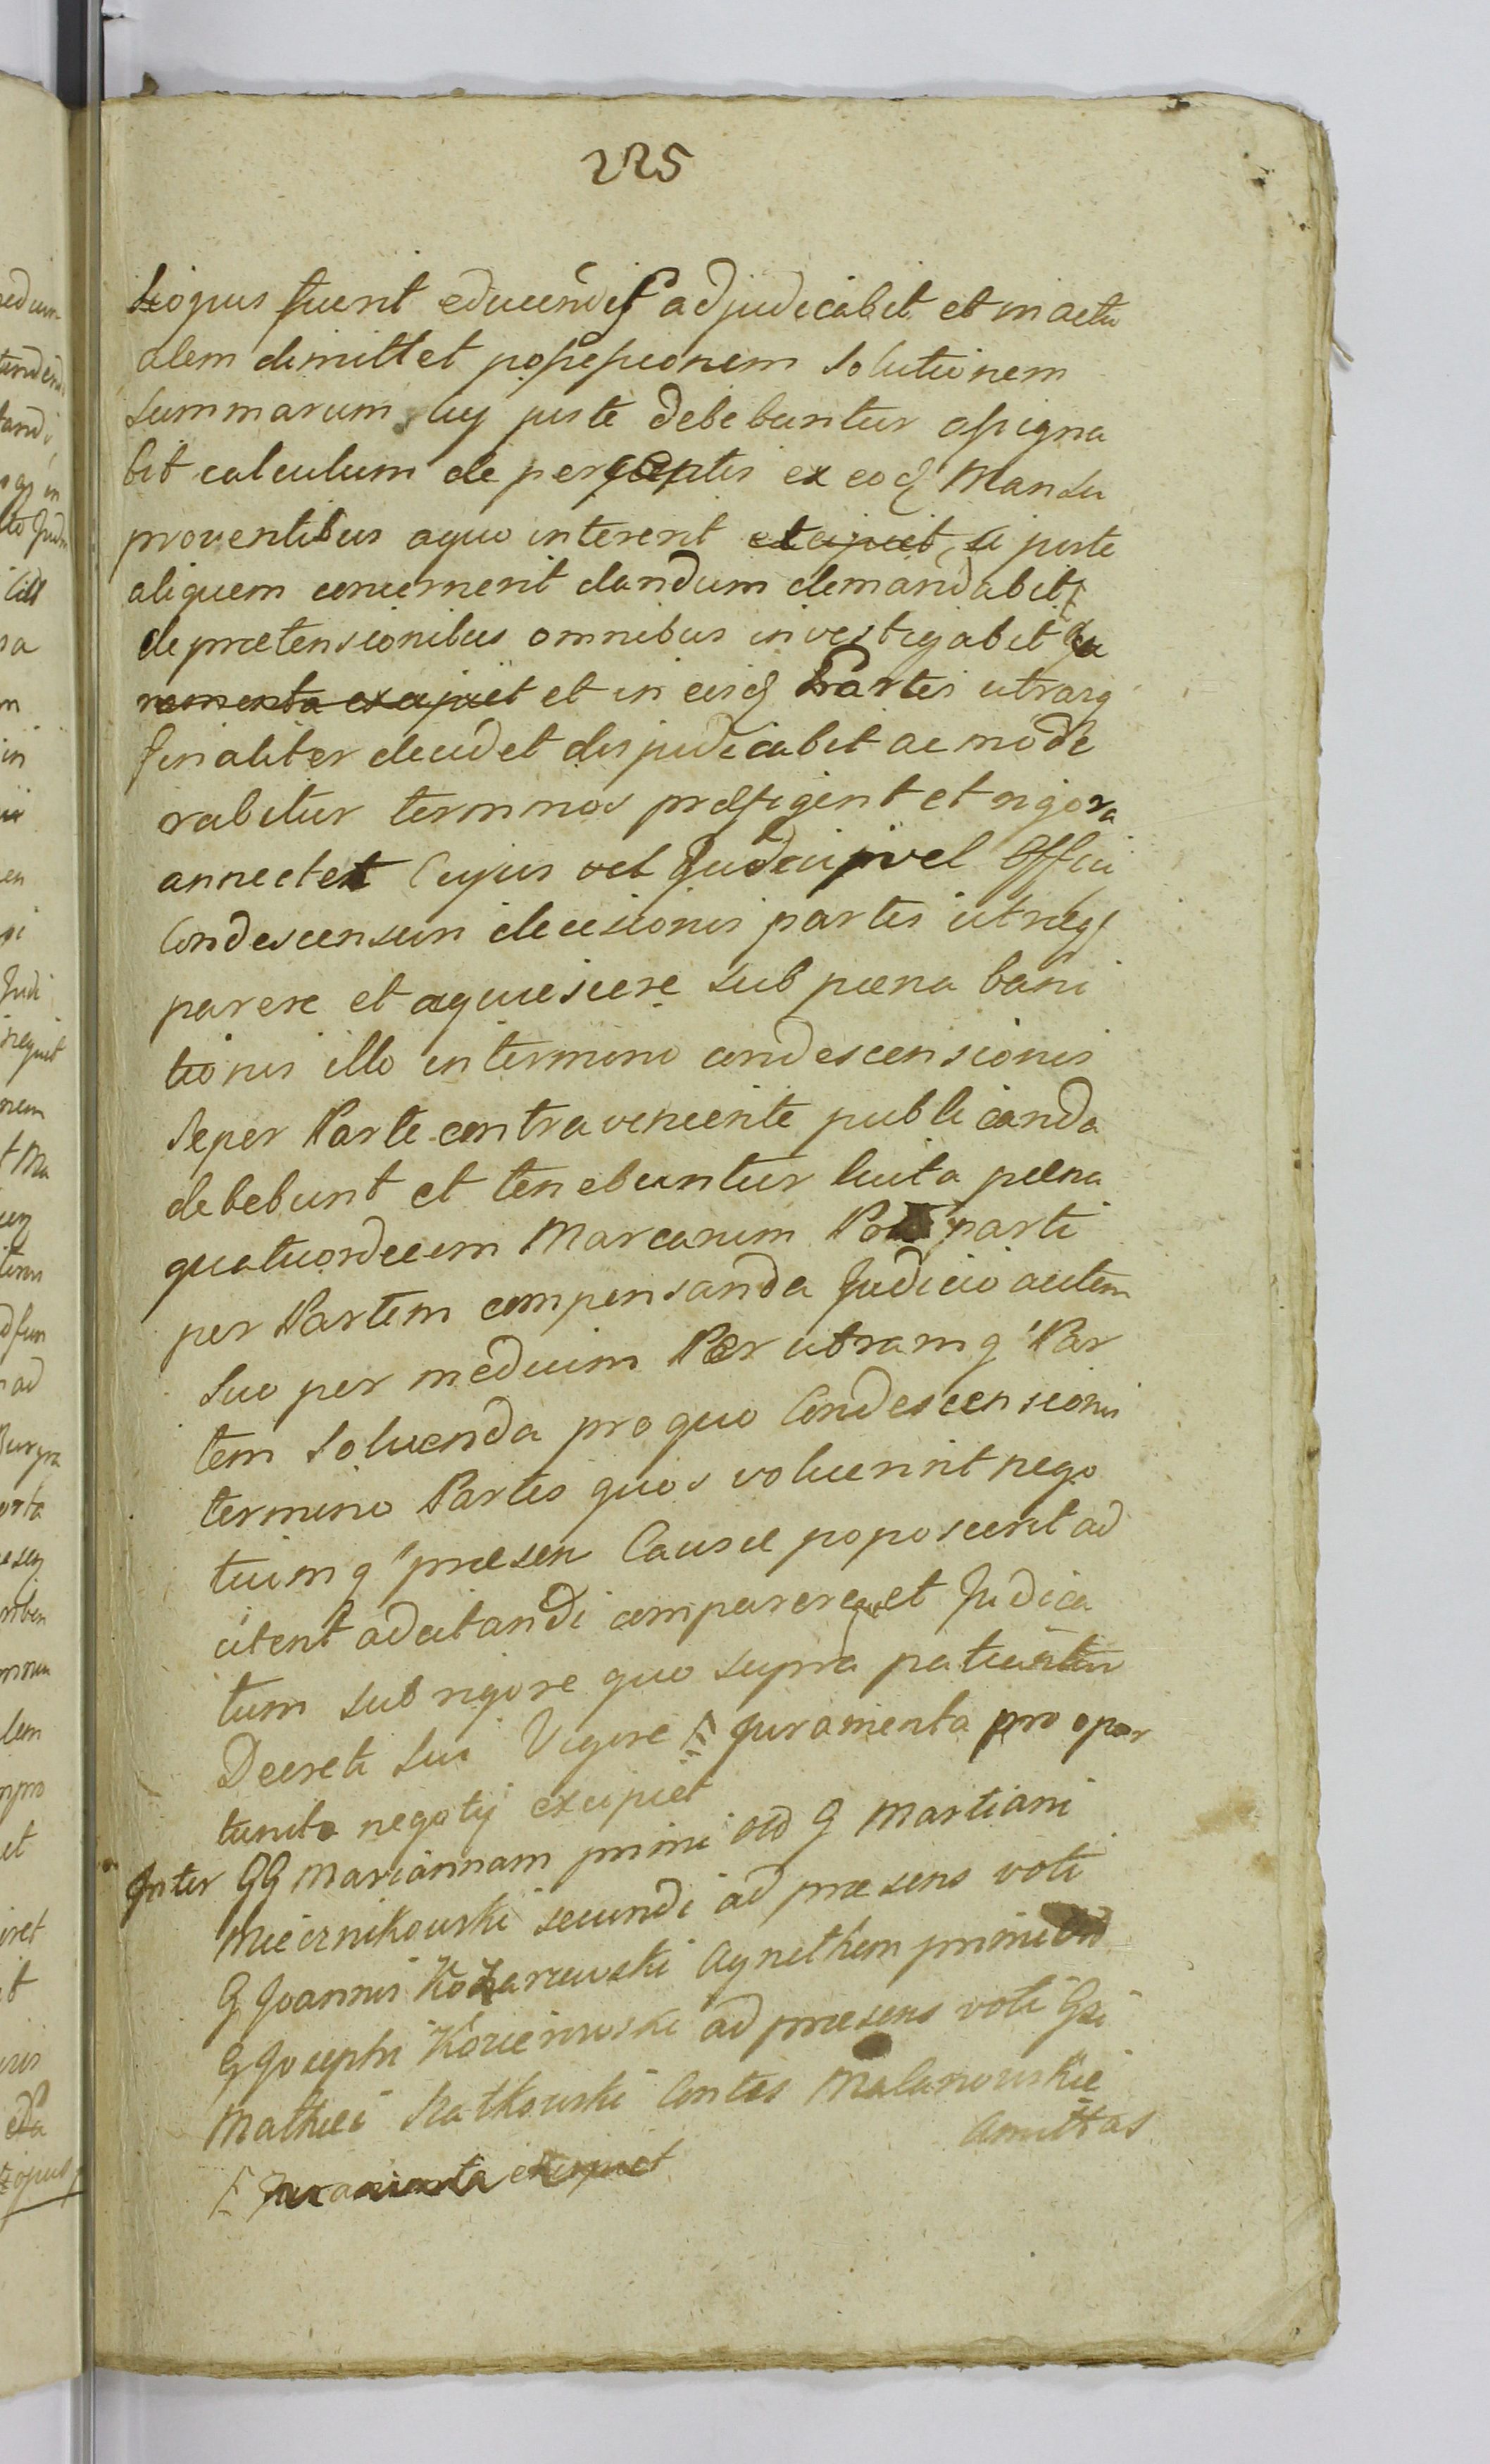 225
si opus fuerit educendis adjudicabit et in actu
alem dimittet possessionem solutionem
summarum cuj juste debebuntur assigna
bit calculum de perceptis ex eoq Mansu
proventibus a quo intererit excipiet, si juste
aliquem concernerit dandum demandabit
de prætensionibus omnibus investigabit Ju
ramenta excipiet et in eisq Partes utrasq
finaliter decidet disjudicabit ac mode
rabitur terminos præfigent et rigora
annectet Cujus vel Judicij vel Officii
Condescensuri decisionis partes utræq
parere et aquiescere sub pæna bani
tionis illo in termino condescensionis
seper Parte contraveniente publicanda
debebunt et tenebuntur luita pæna
quatuordecem Marcarum parti
per Partem compensanda Judicio autem
suo per medium Per utramq Par
tem soluenda pro quo Condescensionis
termino Partes quos voluerint nego
tiumq præsen Causæ poposcerit ad
citent adcitandi comparere et Judica
tum sub rigore quo supra patiantur
Decreti sui Vigore Juramenta pro opor
tunita negotij excipiet
Inter GG Mariannam primi old G Martiani
Miecznikowski secundi ad præsens voti
G Joannis Kozarzewski Agnethem primi old
G Josephi Kozierowski ad præsens voti Gsi
Mathiei Ratkowski Contes Malanowskie
Amittas
Juramenta excipiet